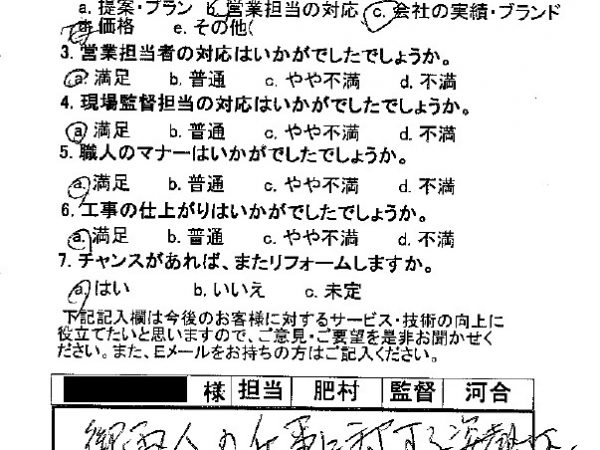 a. 提案・プラン b. 営業担当の対応 c. 会社の実績・ブランド
d. 価格 e. その他(
3. 営業担当者の対応はいかがでしたでしょうか。
a. 満足 b. 普通 c. やや不満 d. 不満
4. 現場監督担当の対応はいかがでしたでしょうか。
a. 満足 b. 普通 c. やや不満 d. 不満
5. 職人のマナーはいかがでしたでしょうか。
a. 満足 b. 普通 c. やや不満 d. 不満
6. 工事の仕上がりはいかがでしたでしょうか。
a. 満足 b. 普通 c. やや不満 d. 不満
7. チャンスがあれば、またリフォームしますか。
a. はい b. いいえ c. 未定
下記記入欄は今後のお客様に対するサービス・技術の向上に
役立てたいと思いますので、ご意見・ご要望を是非お聞かせく
ださい。また、Eメールをお持ちの方はご記入ください。
様 担当 肥村 監督 河合
人の仕事に対する姿勢は、